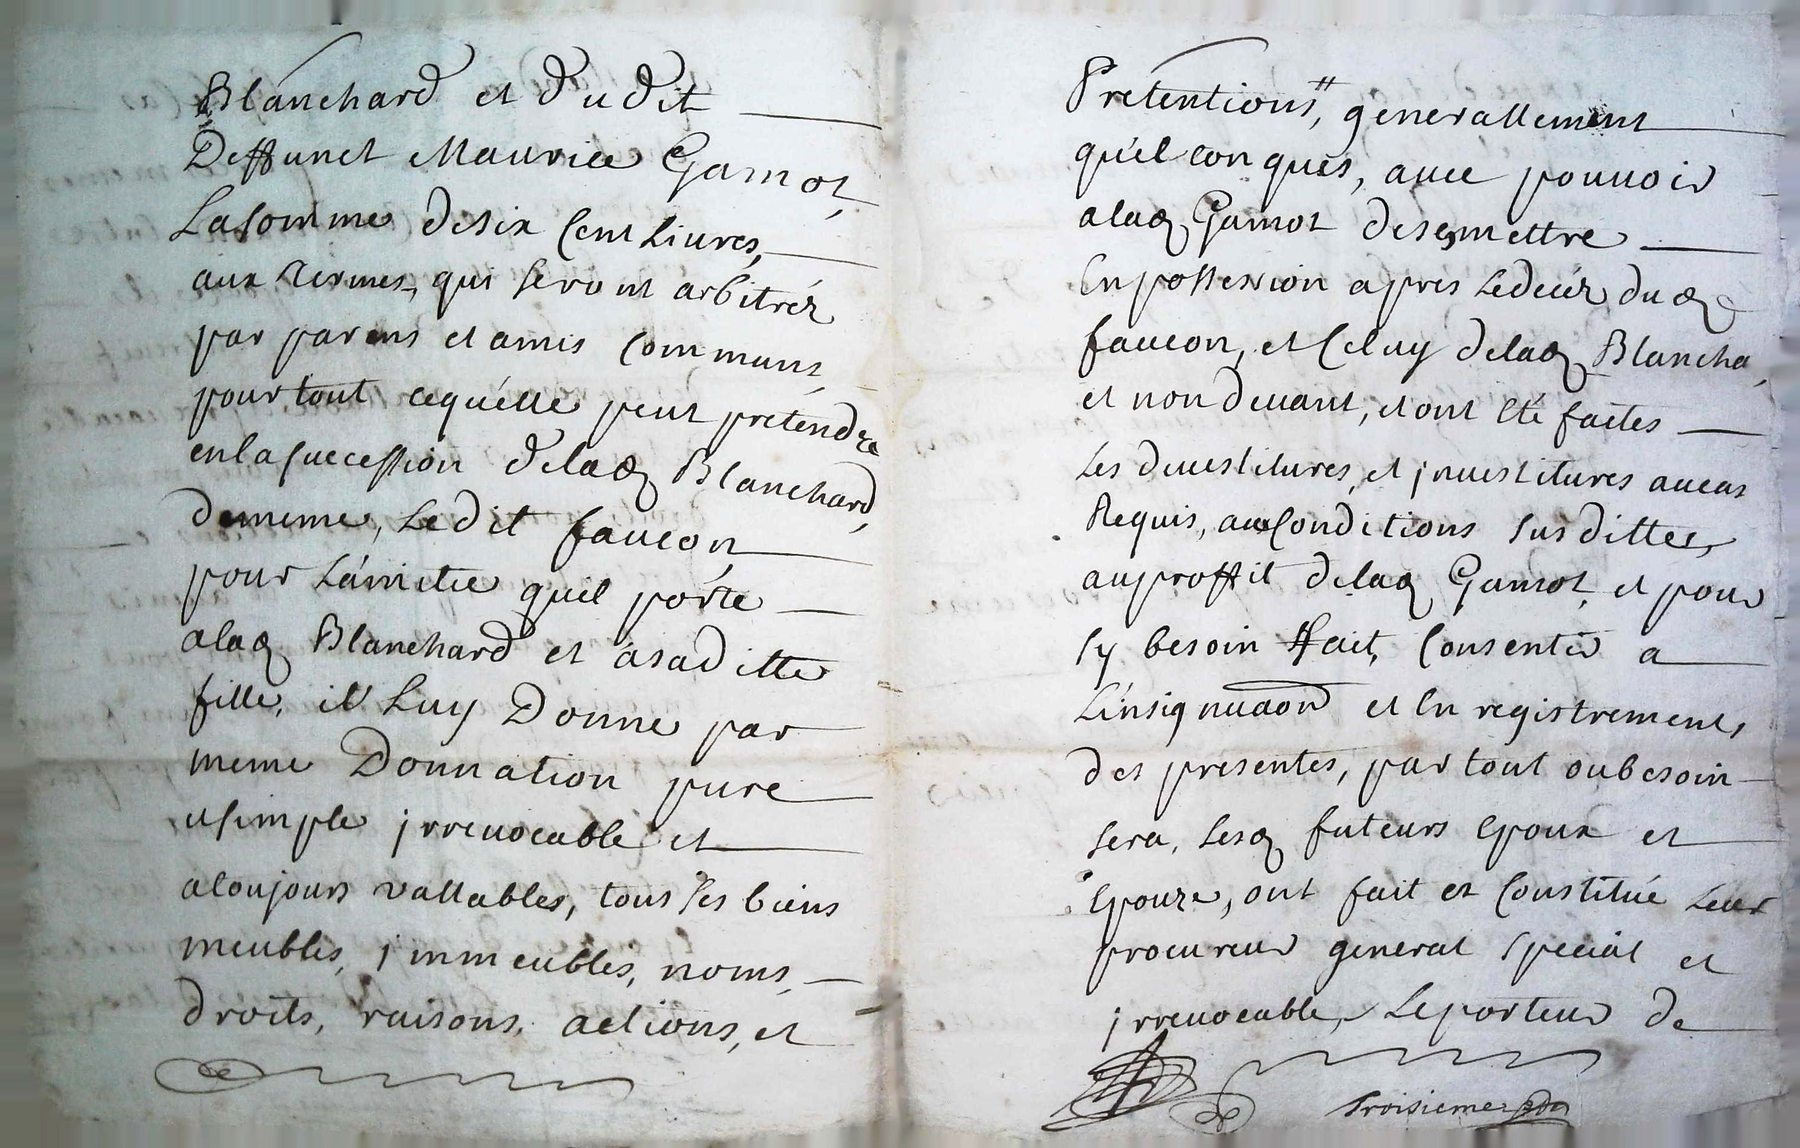 Blanchard et dudit
Deffunct Maurice Gamot,
La somme desix Cent Livres,
aux termes, qui Seront arbitréz
par parens et amis Communs,
pour tout cequ'elle peut pretendre
en la succession delad Blanchard,
dememe, Ledit faucon,
pour L'amitie quil porte
alad Blanchard et asaditte
fille, il Luy Donne par
meme Donnation pure
et simple irrevocable et
atoujours vallables, tous ses biens
meubles, immeubles, noms,
droits, raisons, actions, et
Pretentions, generallement
quelconques, avec pouvoir
alad Gamot desemettre
En possession apres Ledecéz dud
faucon, et Celuy delad Blancha
et non devant, et ont été faites
Les devestitures, et investitures aucas
Requis, aux Conditions susdittes,
auproffit delad Gamot, et pour
sy besoin Fait, Consentir a
L'insignuaon et Enregistrement,
des presentes, partout oubesoin
sera, Lesd futeurs Epoux et
Epouze, ont fait et Constitué Leur
procureur general special et
irrevocable, Leporteur de
troisieme